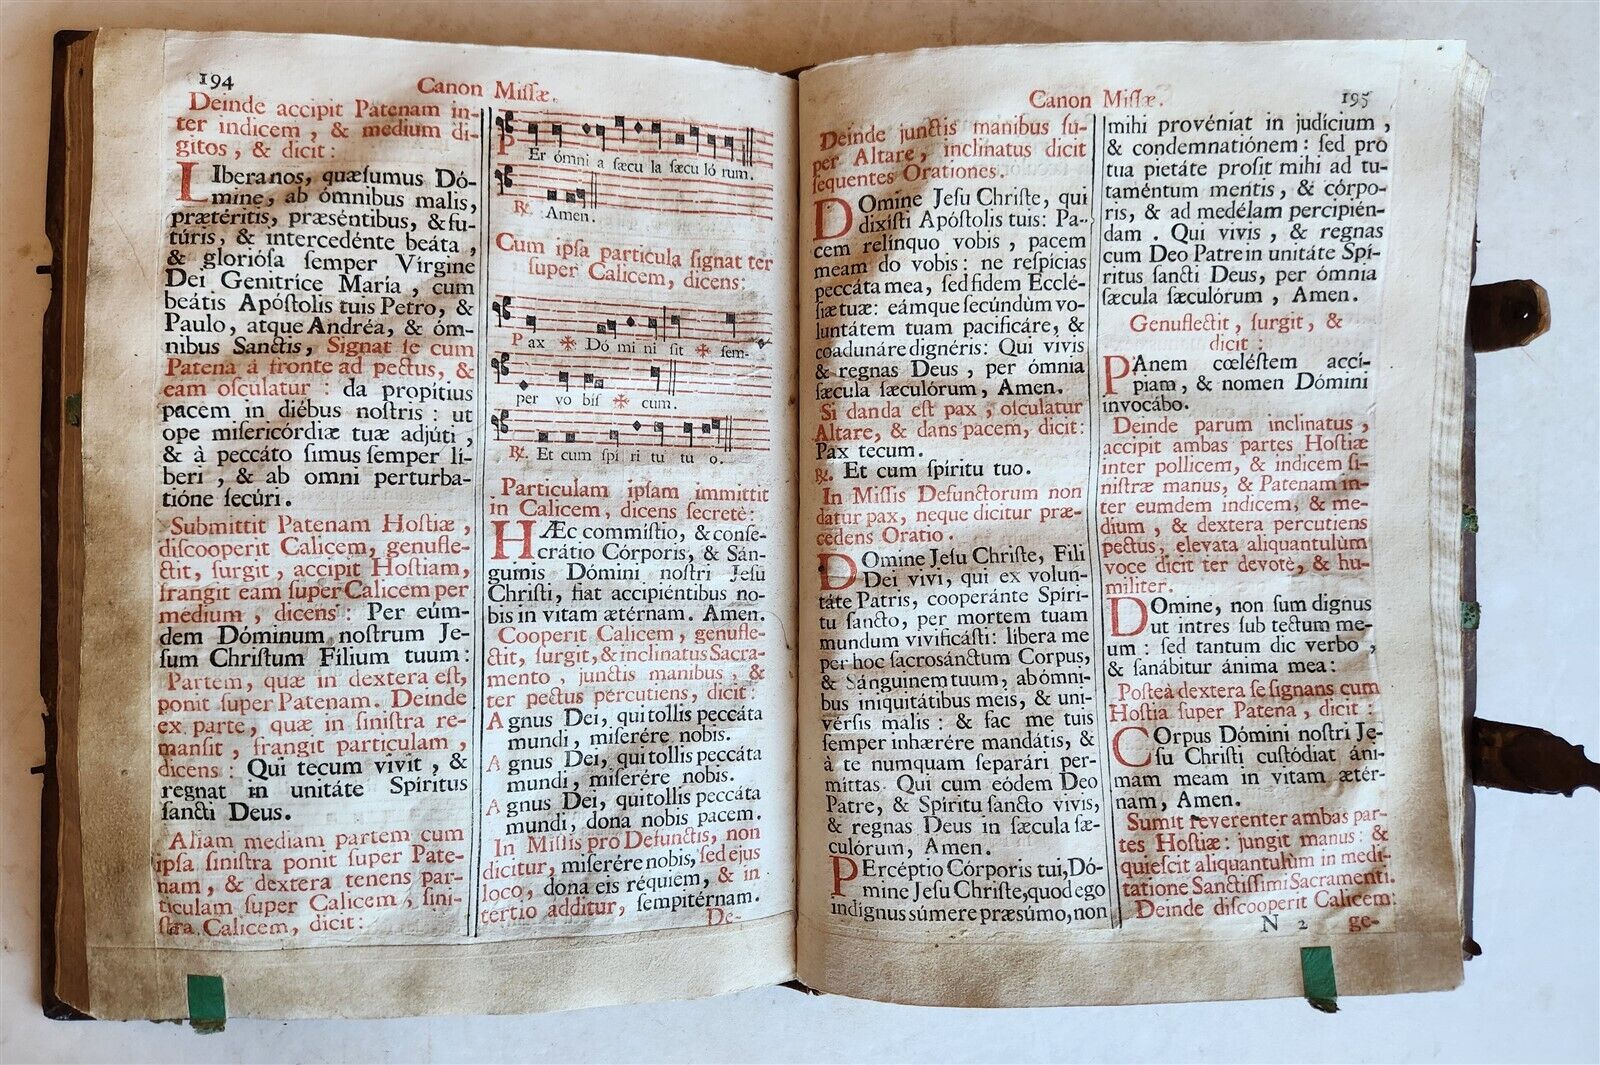 194
Canon Miſſæ.
Deinde accipit Patenam in-
ter indicem, & medium di-
gitos, & dicit:
LIbera nos, quæſumus Dó-
mine, ab ómnibus malis,
prætéritis, præséntibus, & fu-
túris, & intercedénte beáta,
& glorióſa ſemper Vírgine
Dei Genitríce María, cum
beátis Apóſtolis tuis Petro, &
Paulo, atque Andréa, & óm-
nibus Sanctis, Signat ſe cum
Patena á fronte ad pectus, &
eam oſculatur: da propítius
pacem in diébus noſtris: ut
ope miſericórdiæ tuæ adjúti,
& à peccáto ſimus ſemper lí-
beri, & ab omni perturba-
tióne ſecúri.
Submittit Patenam Hoſtiæ,
diſcooperit Calicem, genufle-
ctit, ſurgit, accipit Hoſtiam,
frangit eam ſuper Calicem per
medium, dicens: Per eúm-
dem Dóminum noſtrum Je-
ſum Chriſtum Fílium tuum:
Partem, quæ in dextera eſt,
ponit ſuper Patenam. Deinde
ex parte, quæ in ſiniſtra re-
manſit, frangit particulam,
dicens: Qui tecum vivit, &
regnat in unitáte Spíritus
ſancti Deus.
Aliam mediam partem cum
ipſa ſiniſtra ponit ſuper Pate-
nam, & dextera tenens par-
ticulam ſuper Calicem, ſini-
ſtra Calicem, dicit:
PEr ómni a ſæcu la ſæcu ló rum.
℟. Amen.
Cum ipſa particula ſignat ter
ſuper Calicem, dicens:
Pax ✠ Dó mi ni ſit ✠ ſem-
per vo biſ ✠ cum.
℟. Et cum ſpí ri tu tu o.
Particulam ipſam immittit
in Calicem, dicens ſecretè:
HÆc commíſtio, & conſe-
crátio Córporis, & Sán-
guinis Dómini noſtri Jeſu
Chriſti, fiat accipiéntibus no-
bis in vitam ætérnam. Amen.
Cooperit Calicem, genufle-
ctit, ſurgit, & inclinatus Sacra-
mento, junctis manibus, &
ter pectus percutiens, dicit:
Agnus Dei, qui tollis peccáta
mundi, miſerére nobis.
Agnus Dei, qui tollis peccáta
mundi, miſerére nobis.
Agnus Dei, qui tollis peccáta
mundi, dona nobis pacem.
In Miſſis pro Defunctis, non
dicitur, miſerére nobis, ſed ejus
loco, dona eis réquiem, & in
tertio additur, ſempitérnam.
De-
Canon Miſſæ.
195
Deinde junctis manibus ſu-
per Altare, inclinatus dicit
ſequentes Orationes.
DOmine Jeſu Chriſte, qui
dixíſti Apóſtolis tuis: Pa-
cem relínquo vobis, pacem
meam do vobis: ne reſpícias
peccáta mea, ſed fidem Eccle-
ſiæ tuæ: eámque ſecúndùm vo-
luntátem tuam pacificáre, &
coadunáre dignéris: Qui vivis
& regnas Deus, per ómnia
ſæcula ſæculórum, Amen.
Si danda eſt pax, oſculatur
Altare, & dans pacem, dicit:
Pax tecum.
℟. Et cum ſpíritu tuo.
In Miſſis Defunctorum non
datur pax, neque dicitur præ-
cedens Oratio.
DOmine Jeſu Chriſte, Fili
Dei vivi, qui ex volun-
táte Patris, cooperánte Spíri-
tu ſancto, per mortem tuam
mundum vivificáſti: líbera me
per hoc ſacroſánctum Corpus,
& Sánguinem tuum, ab ómni-
bus iniquitátibus meis, & uni-
vérſis malis: & fac me tuis
ſemper inhærére mandátis, &
à te numquam ſeparári per-
mittas. Qui cum eódem Deo
Patre, & Spíritu ſancto vivis,
& regnas Deus in ſæcula ſæ-
culórum, Amen.
PErcéptio Córporis tui, Dó-
mine Jeſu Chriſte, quod ego
indignus súmere præsúmo, non
mihi provéniat in judícium,
& condemnatiónem: ſed pro
tua pietáte proſit mihi ad tu-
taméntum mentis, & córpo-
ris, & ad medélam percipién-
dam. Qui vivis, & regnas
cum Deo Patre in unitáte Spí-
ritus ſancti Deus, per ómnia
ſæcula ſæculórum, Amen.
Genuflectit, ſurgit, &
dicit:
PAnem cœléſtem accí-
piam, & nomen Dómini
invocábo.
Deinde parum inclinatus,
accipit ambas partes Hoſtiæ
inter pollicem, & indicem ſi-
niſtræ manus, & Patenam in-
ter eumdem indicem, & me-
dium, & dextera percutiens
pectus, elevata aliquantulùm
voce dicit ter devotè, & hu-
militer.
DOmine, non ſum dignus
ut intres ſub tectum me-
um: ſed tantum dic verbo,
& ſanábitur ánima mea:
Poſteà dextera ſe ſignans cum
Hoſtia ſuper Patena, dicit:
COrpus Dómini noſtri Je-
ſu Chriſti cuſtódiat áni-
mam meam in vitam ætér-
nam, Amen.
Sumit reverenter ambas par-
tes Hoſtiæ: jungit manus: &
quieſcit aliquantulùm in medi-
tatione Sanctiſſimi Sacramenti.
Deinde diſcooperit Calicem:
N 2
ge-